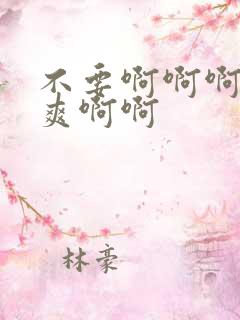 不要啊啊啊
爽啊啊
林豪